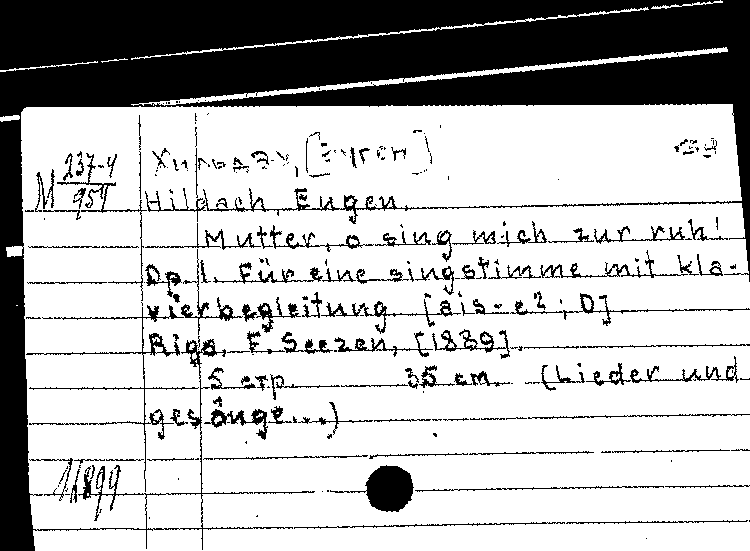 М 237-4/954
Хильдах, [Еуген]
Hildach, Eugen.
Mutter, o sing mich zur ruh!
Op. 1. Für eine singstimme mit kla-
vierbegleitung. [ais-e²; D]
Riga, F. Seezen, [1889].
5 стр. 35 cm. (Lieder und
gesänge...)
11899